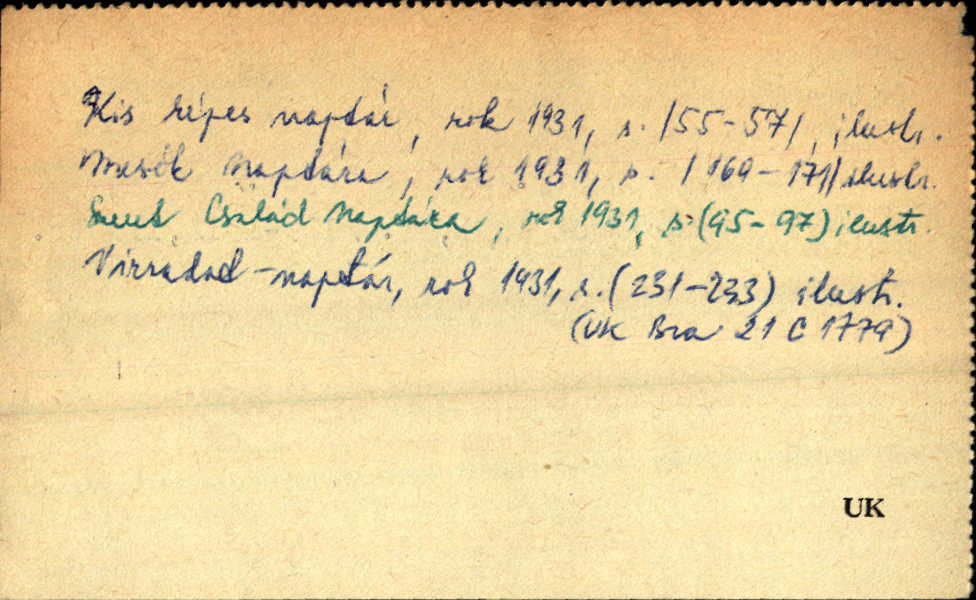 Kis képes naptár, rok 1931, s. /55-57/, ilustr.
Mesék Naptára, rok 1931, s. /169-171/ ilustr.
Szent Család Naptára, rok 1931, s. (95-97) ilustr.
Virradat-naptár, rok 1931, s. (231-233) ilustr.
(UK Bra 21 C 1779)
UK